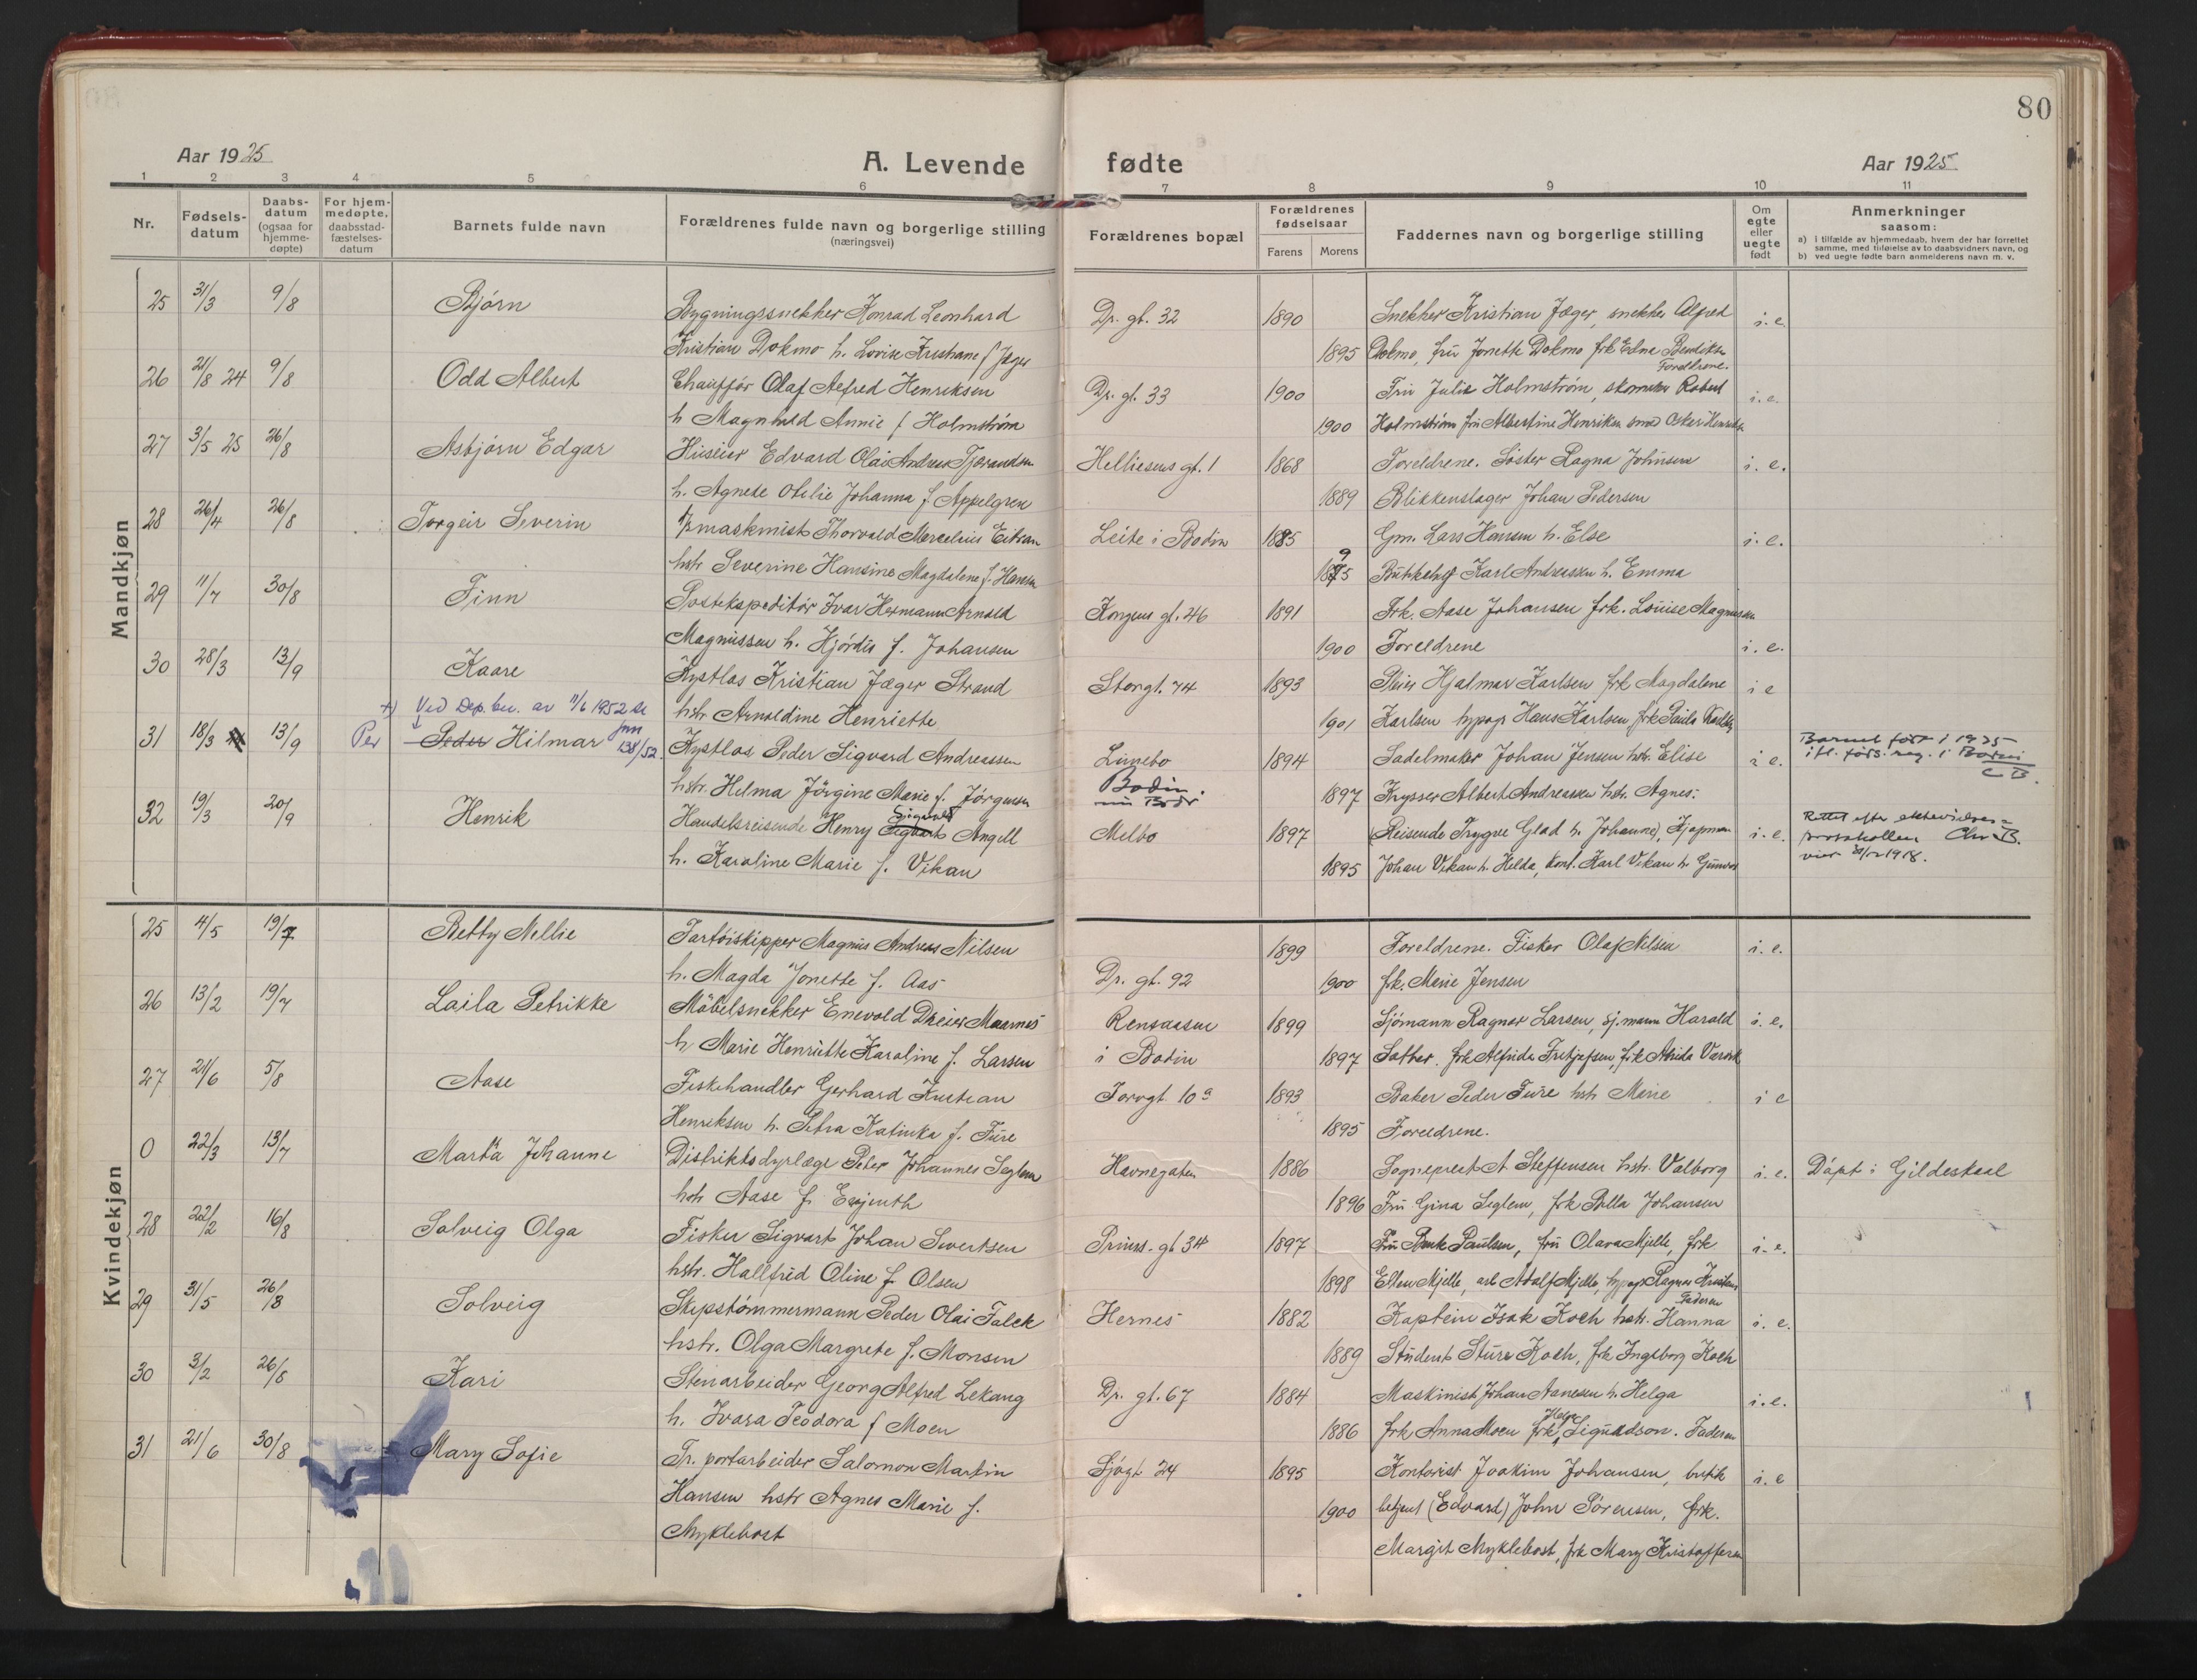 80
Aar 1925
A. Levende fødte
Aar 1925
1 2 3 4 5 6 7 8 9 10 11
Nr.
Fødsels-
datum
Daabs-
datum
(ogsaa for
hjemme-
døpte)
For hjem-
medøpte,
daabsstad-
fæstelses-
datum
Barnets fulde navn
Forældrenes fulde navn og borgerlige stilling
(næringsvei)
Forældrenes bopæl
Forældrenes
fødselsaar
Farens Morens
Faddernes navn og borgerlige stilling
Om
egte
eller
uegte
født
Anmerkninger
saasom:
a) i tilfælde av hjemmedaab, hvem der har forrettet
samme, med tilføielse av to daabsvidners navn, og
b) ved uegte fødte barn anmelderens navn m. v.
Mandkjøn
25 31/3 9/8 Bjørn Bygningssnekker Konrad Leonhard Dr. gt. 32 1890 Snekker Kristian Jæger, snekker Alfred i. e.
Kristian Dokmo h. Lovise Kristiane f Jæger 1895 Dokmo, fru Jonette Dokmo frk Edna Bendiksen
Foreldrene.
26 21/8 24 9/8 Odd Albert Chauffør Olaf Alfred Henriksen Dr. gt. 33 1900 Fru Julie Holmstrøm, skomaker Robert i. e.
h Magnhild Annie f Holmstrøm 1900 Holmstrøm fru Albertine Henriksen smed Oskar Henriksen
27 3/5 25 26/8 Asbjørn Edgar Huseier Edvard Olai Andreas Tjærandsen Helliesens gt. 1 1868 Foreldrene. Søster Ragna Johnsen i. e.
h. Agnete Otilie Johanna f Appelgren 1889 Blikkenslager Johan Pedersen
28 26/4 26/8 Torgeir Severin maskinist Thorvald Marcelius Leite i Bodin 1885 Gm. Lars Hansen h. Else i. e.
hstr Severine Hansine Magdalene f. Hansen 1895 Karl Andreassen h. Emma
29 11/7 30/8 Finn Postekspeditør Ivar Hermann Arnold Kongens gt. 46 1891 Frk. Aase Johansen frk. Louise Magnussen
Magnussen h. Hjørdis f. Johansen 1900 Foreldrene i. e.
30 28/3 13/9 Kaare Kystlos Kristian Jæger Strand Storgt. 74 1893 Hjalmar Karlsen frk Magdalene i e
hstr Arnoldine Henriette 1901 Karlsen typogr Hans Karlsen frk Paula Karlsen
x) Ved Dep. bev. av 11/6 1952 se
jnn
138/52.
31 18/3 13/9 Per Peder Hilmar Kystlos Peder Sigvard Andreassen Linnebo 1894 Sadelmaker Johan Jensen hstr. Elise i e. Barnet født i 1925
ifl. føds. reg. i Bodin
C B.
hstr. Helma Jørgine Marie f. Jørgensen Bodin. 1897 Krysser Albert Andreassen hstr. Agnes.
nu Bodø
32 19/3 20/9 Henrik Handelsreisende Henry Sigvart Sigvald Angell Melbo 1897 Reisende Trygve Glad h. Johanne, Kjøpman i. e. Rettet efter ektevielses=
protokollen Chr B.
h. Karoline Marie f. Vikan 1895 Johan Vikan h. Helda, kont. Karl Vikan h. Gunvor viet 1918.
Kvindekjøn
25 4/5 19/7 Betty Nellie Fartøiskipper Magnus Andreas Nilsen 1899 Foreldrene. Fisker Olaf Nilsen i. e.
h. Magda Jonette f. Aas Dr. gt. 92 1900 frk. Marie Jensen
26 13/2 19/7 Laila Petrikke Møbelsnekker Enevold Dreier Maarnes Rensaasen 1899 Sjømann Ragnar Larsen, sj. mann Harald i. e.
h. Marie Henriette Karoline f. Larsen i Bodin 1897 Sather. frk Alfrida Fritjofsen, frk
27 21/6 5/8 Aase Fiskehandler Gerhard Kristian Torvgt 10 a 1893 Baker Peder Fure hstr Marie i e
Henriksen h. Petra Katinka f. Fure 1895 Foreldrene.
0 22/3 13/7 Marta Johanne Distriktsdyrlæge Peter Johannes Seglem Havnegaten 1886 Sogneprest A Steffensen hstr. Valborg i. e. Døpt i Gildeskaal
hstr Aase f. 1896 Fru Gina Seglem, frk Bella Johansen
28 22/2 16/8 Solveig Olga Fisker Sigvart Johan Sivertsen Prinss. gt 34 1897 Fru Paulsen, fru Olava Mjelle, frk i. e.
hstr. Hallfrid Oline f. Olsen 1898 Ellen Mjelle, arb Adolf Mjelle, typogr Ragnar
Faderen
29 31/5 26/8 Solveig Skipstømmermann Peder Olai Falck Hernes 1882 Kaptein Isak Koch hstr. Hanna i. e.
hstr. Olga Margrete f. Monsen 1889 Student Sture Koch, frk Ingeborg Koch
30 3/2 26/8 Kari Stenarbeider Georg Alfred Lekang Dr. gt. 67 1884 Maskinist Johan Aanesen h. Helga i. e.
h. Ivara Teodora f Moen 1886 frk Anna Moen frk Helga Sigurdson. Faderen
31 21/6 30/8 Mary Sofie Tr. portarbeider Salomon Martin Sjøgt 24 1895 Kontorist Joakim Johansen, butik i. e
Hansen hstr Agnes Marie f. 1900 betjent (Edvard) John Sørensen, frk.
Myklebost Margit Myklebost, frk Mary Kristoffersen